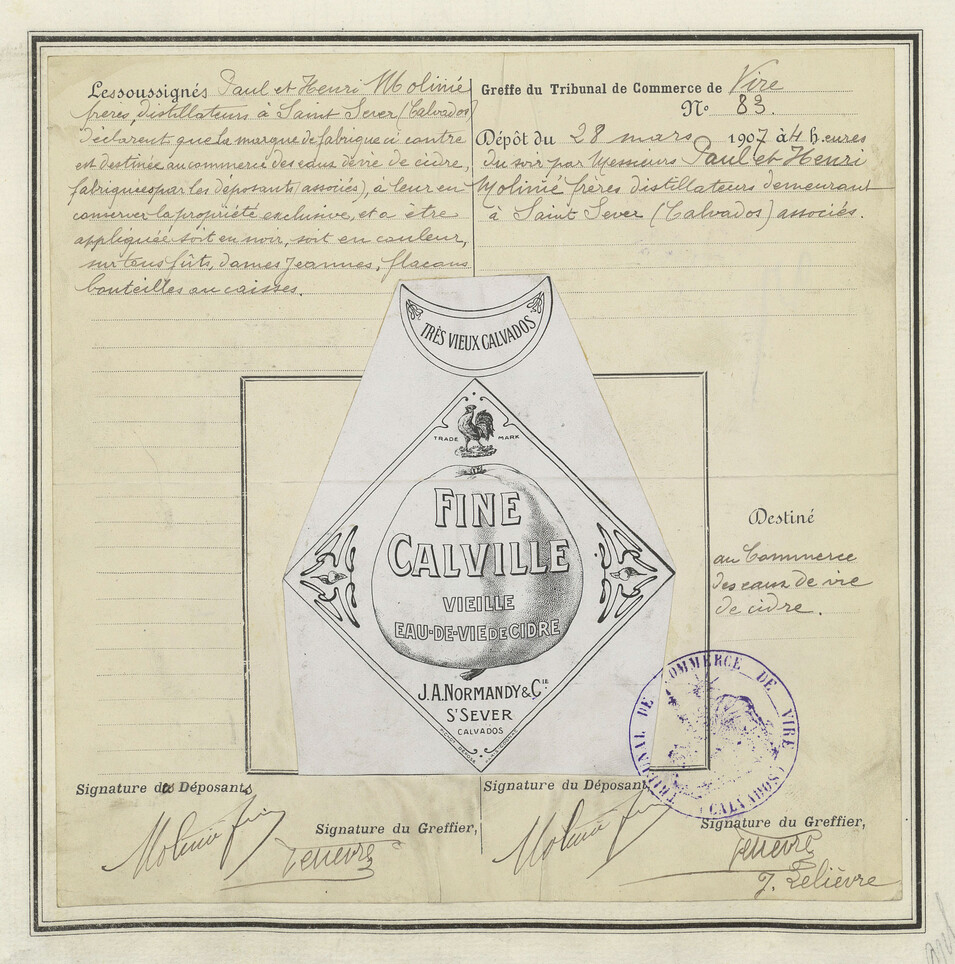 Les soussignés Paul et Henri Molinié
frères, distillateurs à Saint Sever (Calvados)
déclarent que la marque de fabrique ci contre
est destinée au commerce des eaux d'évie de cidre,
fabriquées par les déposants (associés), à leur en
conserver la propriété exclusive, et a être
appliquée soit en noir, soit en couleur,
sur tous fûts, dames jeannes, flacons
bouteilles ou caisses.
Greffe du Tribunal de Commerce de Vire
No 83
Dépôt du 28 mars 1907 à 4 heures
du soir par Messieurs Paul et Henri
Molinié frères distillateurs demeurant
à Saint Sever (Calvados) associés.
TRÈS VIEUX CALVADOS
TRADE MARK
FINE
CALVILLE
VIEILLE
EAU-DE-VIE DE CIDRE
J.A. NORMANDY & CIE
ST SEVER
CALVADOS
Destiné
au Commerce
des eaux de vie
de cidre.
TRIBUNAL DE COMMERCE DE VIRE
(CALVADOS)
Signature des Déposants
Signature du Déposant,
Molinié frères
Signature du Greffier,
Molinié frères
Signature du Greffier,
J. Lelièvre